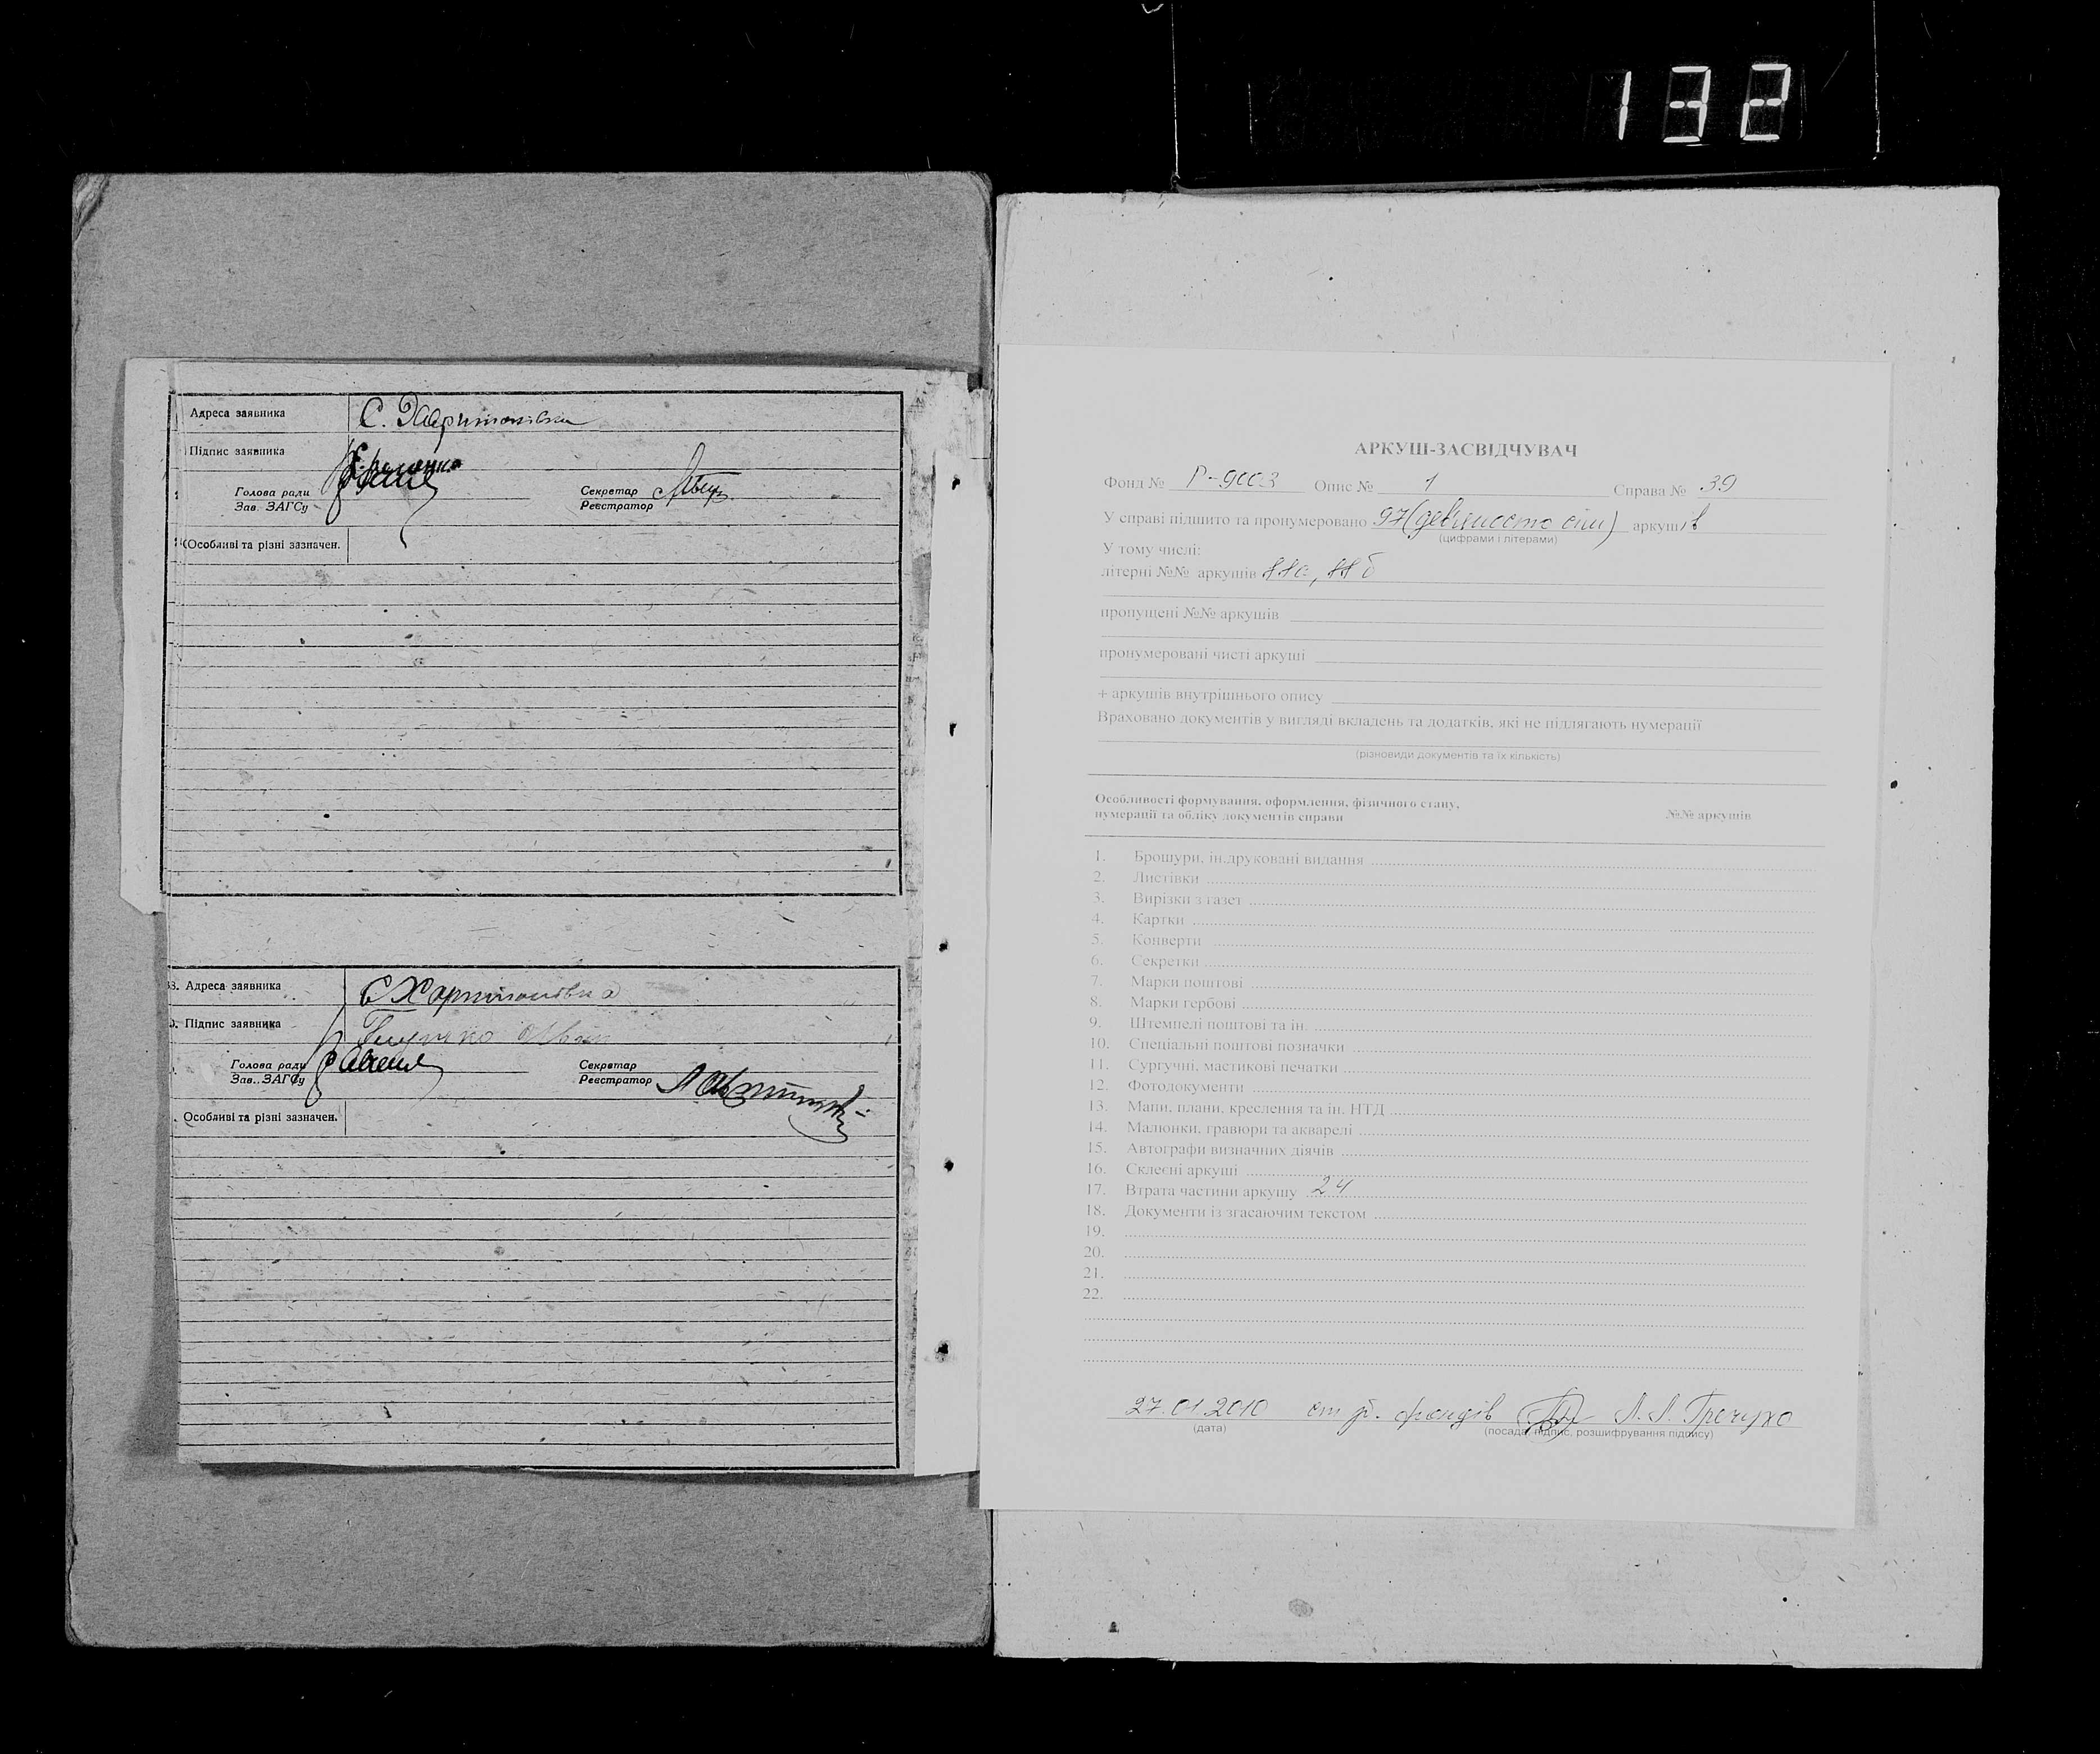 132
Адреса заявника С. Харитонівка
Підпис заявника
Голова ради
Зав. ЗАГСу
Секретар
Реєстратор
Особливі та різні зазначен.
33. Адреса заявника С Харитонівка
Підпис заявника
Голова ради
Зав. ЗАГСу
Секретар
Реєстратор
Особливі та різні зазначен.
АРКУШ-ЗАСВІДЧУВАЧ
Фонд № Р-9003 Опис № 1 Справа № 39
У справі підшито та пронумеровано 97 (дев'яносто сім) аркушів
(цифрами і літерами)
У тому числі:
літерні №№ аркушів
пропущені №№ аркушів
пронумеровані чисті аркуші
+ аркушів внутрішнього опису
Враховано документів у вигляді вкладень та додатків, які не підлягають нумерації
(різновиди документів та їх кількість)
Особливості формування, оформлення, фізичного стану,
нумерації та обліку документів справи
№№ аркушів
1. Брошури, ін.друковані видання
2. Листівки
3. Вирізки з газет
4. Картки
5. Конверти
6. Секретки
7. Марки поштові
8. Марки гербові
9. Штемпелі поштові та ін.
10. Спеціальні поштові позначки
11. Сургучні, мастикові печатки
12. Фотодокументи
13. Мапи, плани, креслення та ін. НТД
14. Малюнки, гравюри та акварелі
15. Автографи визначних діячів
16. Склеєні аркуші
17. Втрата частини аркушу 24
18. Документи із згасаючим текстом
19.
20.
21.
22.
27.01.2010 фондів Л.Л. Гречухо
(дата)
(посада, підпис, розшифрування підпису)